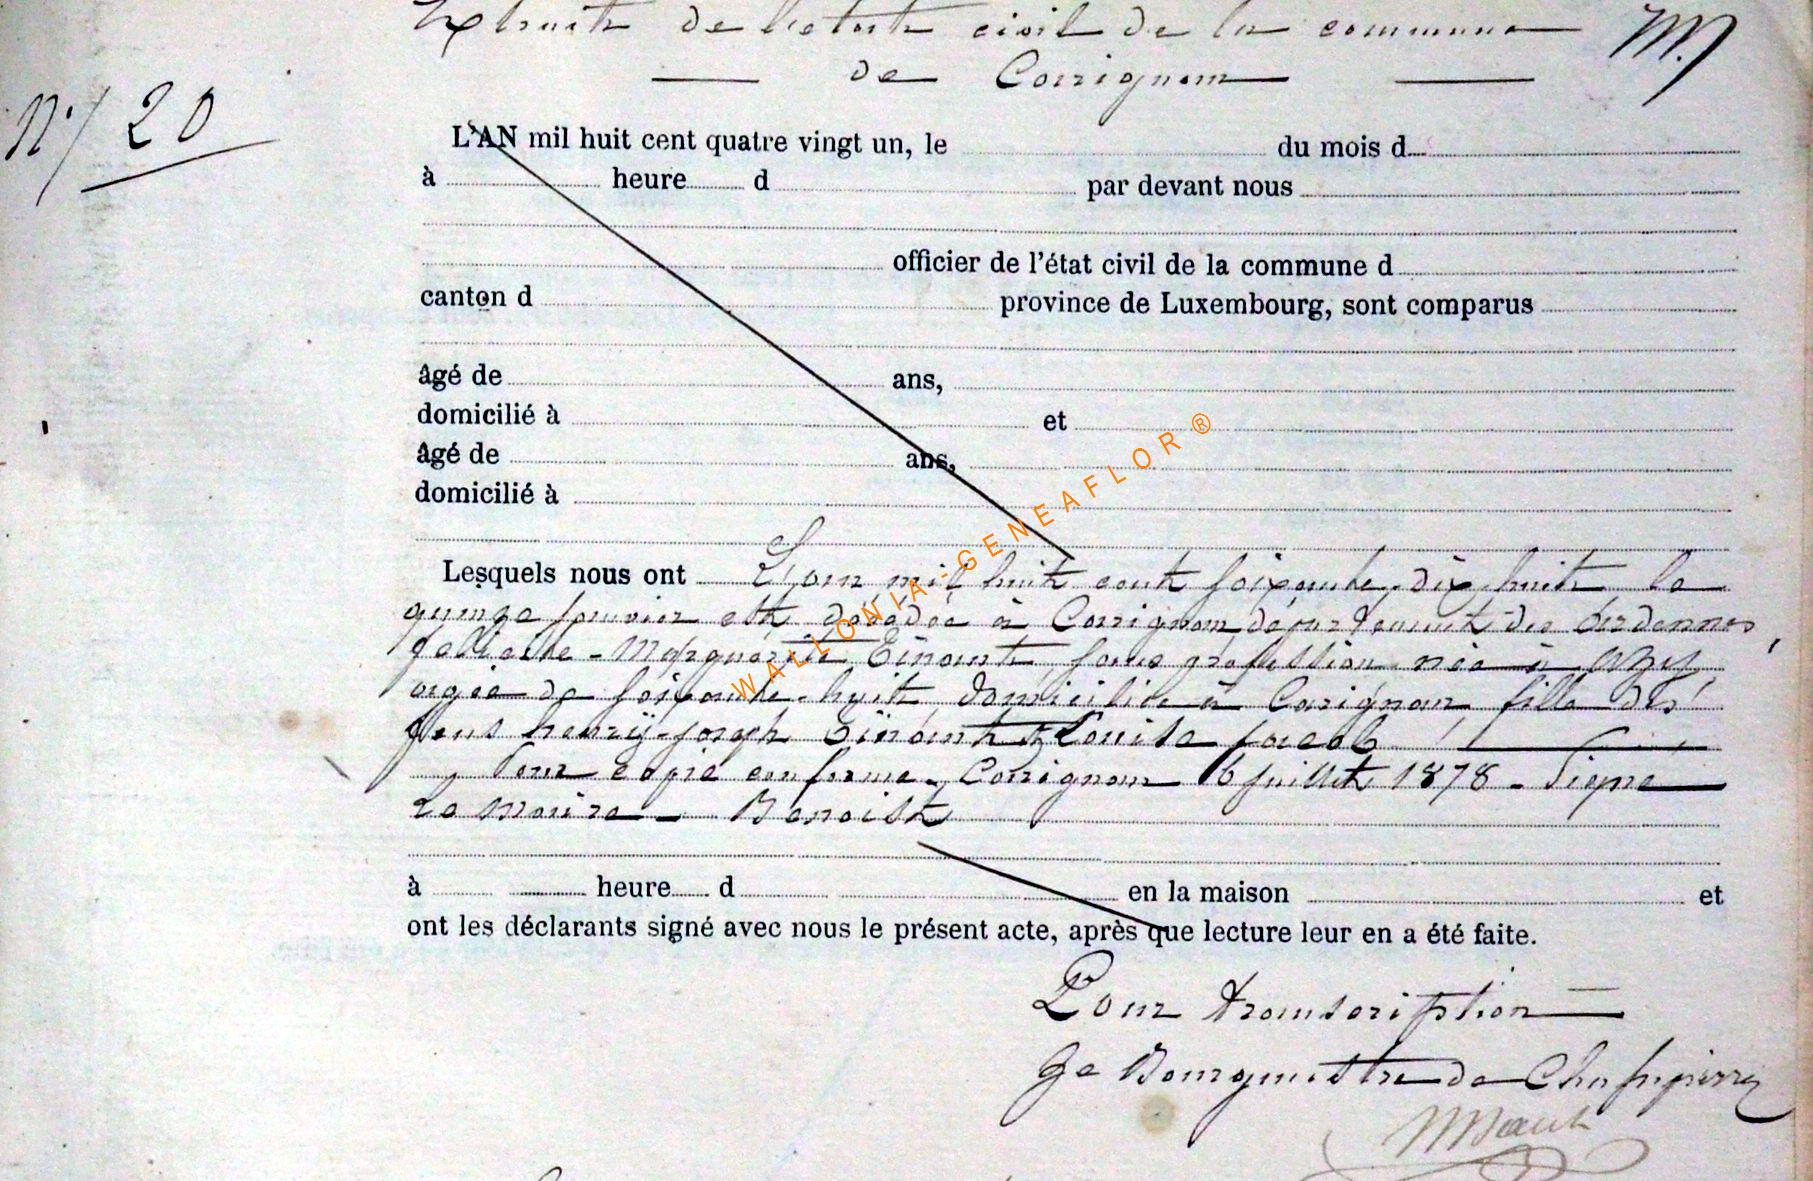 Extrait de l'etat civil de la commune
de Carignan
N° 20
L'AN mil huit cent quatre vingt un, le du mois d
à heure d par devant nous
officier de l'état civil de la commune d
canton d province de Luxembourg, sont comparus
âgé de ans,
domicilié à et
âgé de ans,
domicilié à
Lesquels nous ont L'an mil huit cent soixante-dix-huit le
quinze janvier est décédée à Carignan département des Ardennes,
Marguerite sans profession née à
agée de soixante-huit domiciliée à Carignan fille des
feus henry-joseph & Louise jacob
Pour copie conforme. Carignan 6 juillet 1878 - Signé
Le Maire - Benoist
à heure d en la maison et
ont les déclarants signé avec nous le présent acte, après que lecture leur en a été faite.
Pour transcription
Le Bourgmestre de Chassepierre
WALLONIA-GENEAFLOR®